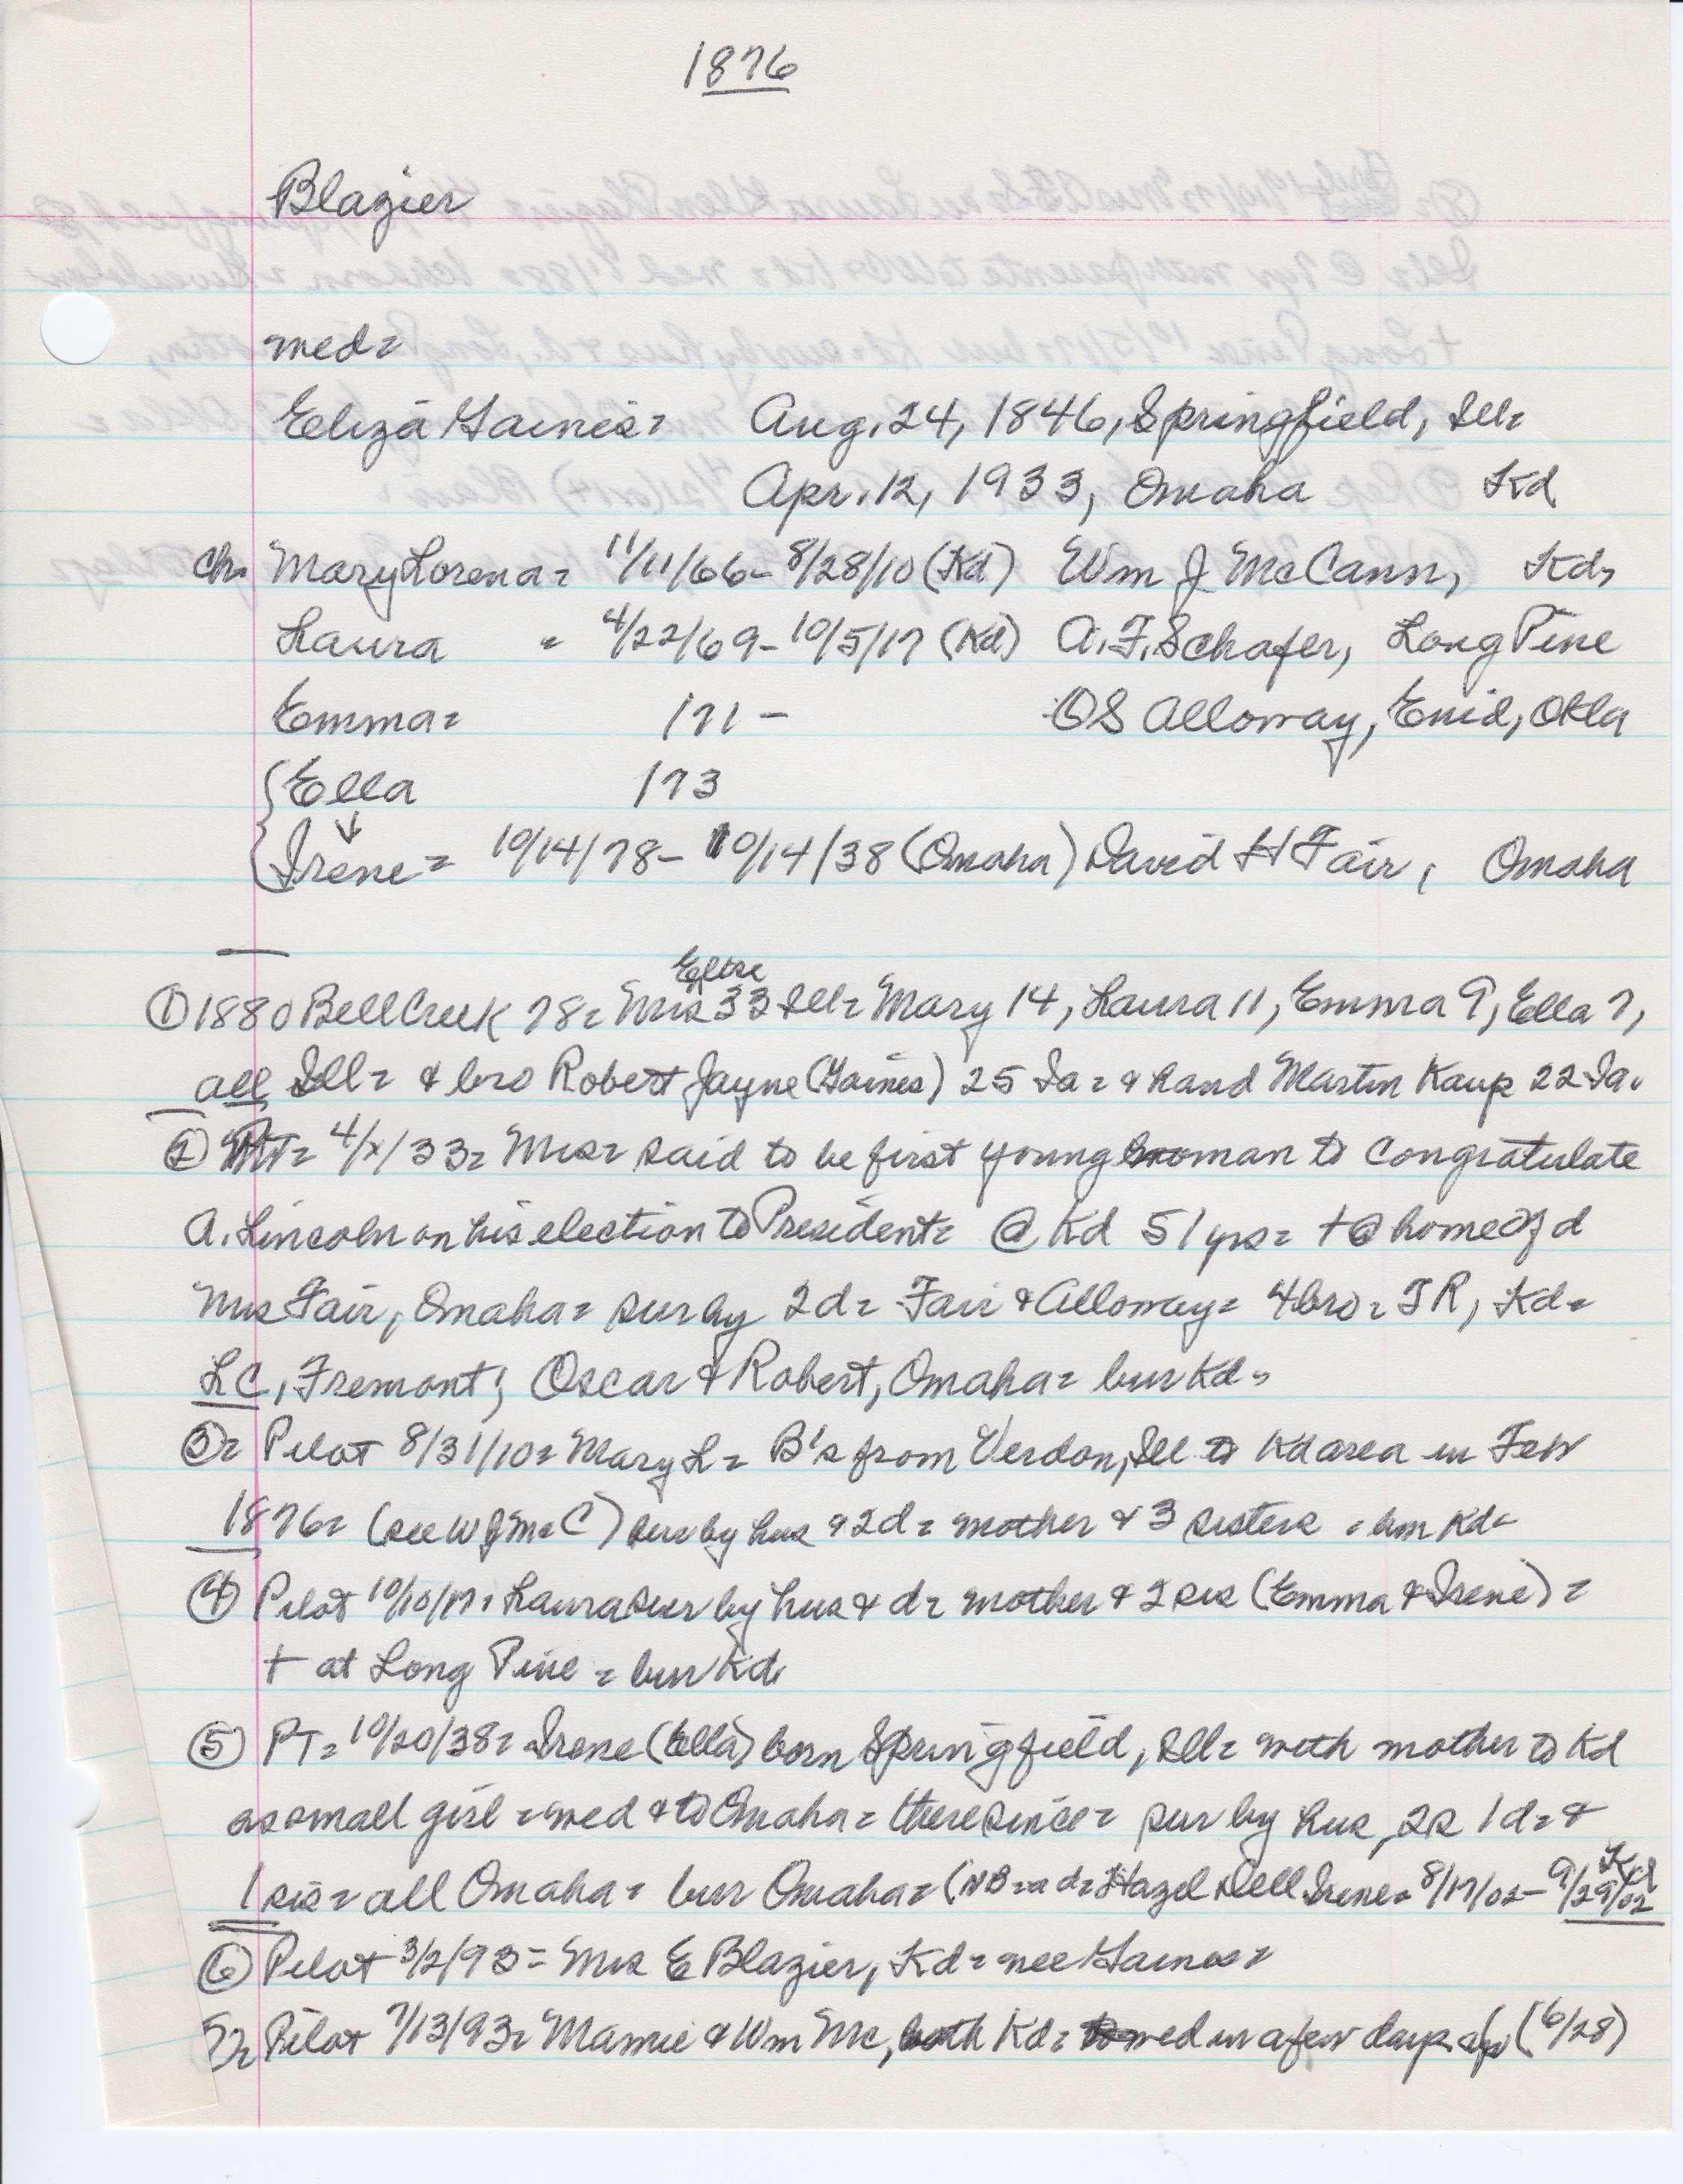 1876
Blazier
med=
Eliza Gaines= Aug. 24, 1846, Springfield, Ill=
Apr. 12, 1933, Omaha Kd
Ch= Mary Lorena= 11/11/66- 8/28/10 (Kd) Wm J McCann, Kd,
Laura = 4/22/69- 10/5/17 (Kd) A. F. Schafer, Long Pine
Emma= /71 - OS Alloway, Enid, Okla
Ella /73
Irene= 10/14/78- 10/14/38 (Omaha) David H Fair, Omaha
① 1880 Bell Creek 78= Mrs 33 Ill= Mary 14, Laura 11, Emma 9, Ella 7,
all Ill= & bro Robert Jayne (Gaines) 25 Ia= & hand Martin Kaup 22 Ia.
② PT= 4/x/33= Mrs= said to be first young woman to congratulate
A. Lincoln on his election to President= @ Kd 51 yrs= + @ home of d
Mrs Fair, Omaha= sur by 2d= Fair & Alloway= 4 bro= J R, Kd=
LC, Fremont; Oscar & Robert, Omaha= bur Kd=
③= Pilot 8/31/10= Mary L= B's from Verdon, Ill to Kd area in Feb
1876= (see W J McC) sur by hus & 2d= mother & 3 sisters = bur Kd=
④ Pilot 10/10/17= Laura sur by hus & d= mother & 2 sis (Emma & Irene)=
+ at Long Pine = bur Kd.
⑤ PT= 10/20/38= Irene (Ella) born Springfield, Ill= with mother to Kd
as small girl = med & to Omaha= there since= sur by hus, 2s 1d= &
1 sis= all Omaha= bur Omaha= (NB= a d= Hazel Dell Irene= 8/17/02- 9/29/02 Kd
⑥ Pilot 3/2/93= Mrs E Blazier, Kd= nee Gaines=
7= Pilot 7/13/93= Mamie & Wm Mc, both Kd= med in a few days (6/28)